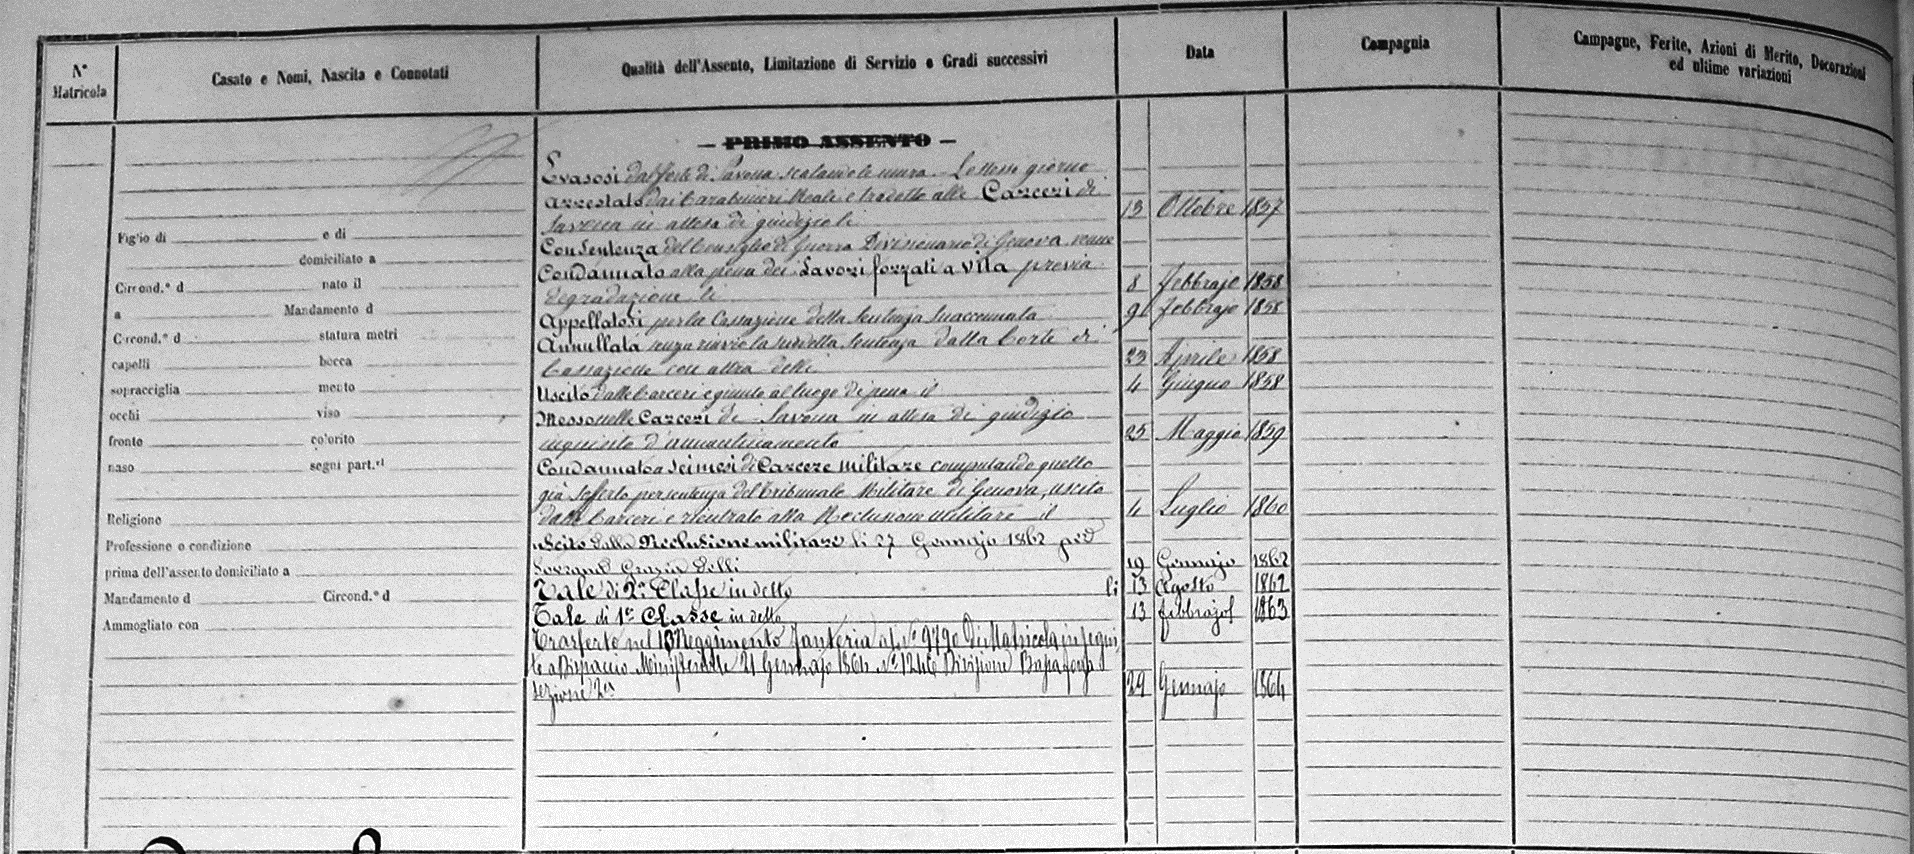 N° Matricola
Casato e Nomi, Nascita e Connotati
Qualità dell'Assento, Limitazione di Servizio e Gradi successivi
Data
Compagnia
Campagne, Ferite, Azioni di Merito, Decorazioni
ed ultime variazioni
Figlio di e di
domiciliato a
Circond.° d nato il
a Mandamento d
Circond.° d statura metri
capelli bocca
sopracciglia mento
occhi viso
fronte colorito
naso segni part.ri
Religione
Professione o condizione
prima dell'assento domiciliato a
Mandamento d Circond.° d
Ammogliato con
— PRIMO ASSENTO —
Evasosi dal forte di Savona scalando le mura. Lo stesso giorno
arrestato dai Carabinieri Reali e tradotto alle Carceri di
Savona in attesa di giudizio li 13 Ottobre 1857
Con Sentenza del Consiglio di Guerra Divisionario di Genova venne
Condannato alla pena dei Lavori forzati a vita previa
degradazione li 8 febbrajo 1858
Appellatosi per la Cassazione della Sentenza Suaccennata 9 febbrajo 1858
Annullata senza rinvio la suddetta Sentenza dalla Corte di
Cassazione con altra delli 23 Aprile 1858
Uscito dalle Carceri e giunto al luogo di pena il 4 Giugno 1858
Messo nelle Carceri di Savona in attesa di giudizio
inquisito d'ammutinamento 25 Maggio 1859
Condannato a sei mesi di Carcere militare computando quello
già sofferto per sentenza del Tribunale Militare di Genova, uscito
dalle Carceri e rientrato alla Reclusione militare il 4 Luglio 1860
uscito dalla Reclusione militare li 27 Gennajo 1862 per
Sovrana Grazia delli 19 Gennajo 1862
Tale di 2a Classe in detto li 13 Agosto 1862
Tale di 1a Classe in detto 13 febbrajo 1863
Trasferto nel 13 Reggimento fanteria al N° 9720 di Matricola in segui
te a Dispaccio Ministeriale 21 Gennajo 1864 N° 1246 Divisione Bassa forza
sezione 2a 29 Gennajo 1864